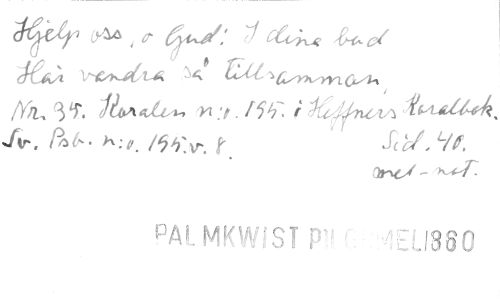 Hjelp oss, o Gud! I dina bud
Här vandra så tillsamman,
Nr. 35. Koralen n:o. 195. i Hæffners Koralbok.
Sv. Psb. n:o. 195. v. 8. Sid. 40.
mel-not.
PALMKWIST PILGRMEL 1860